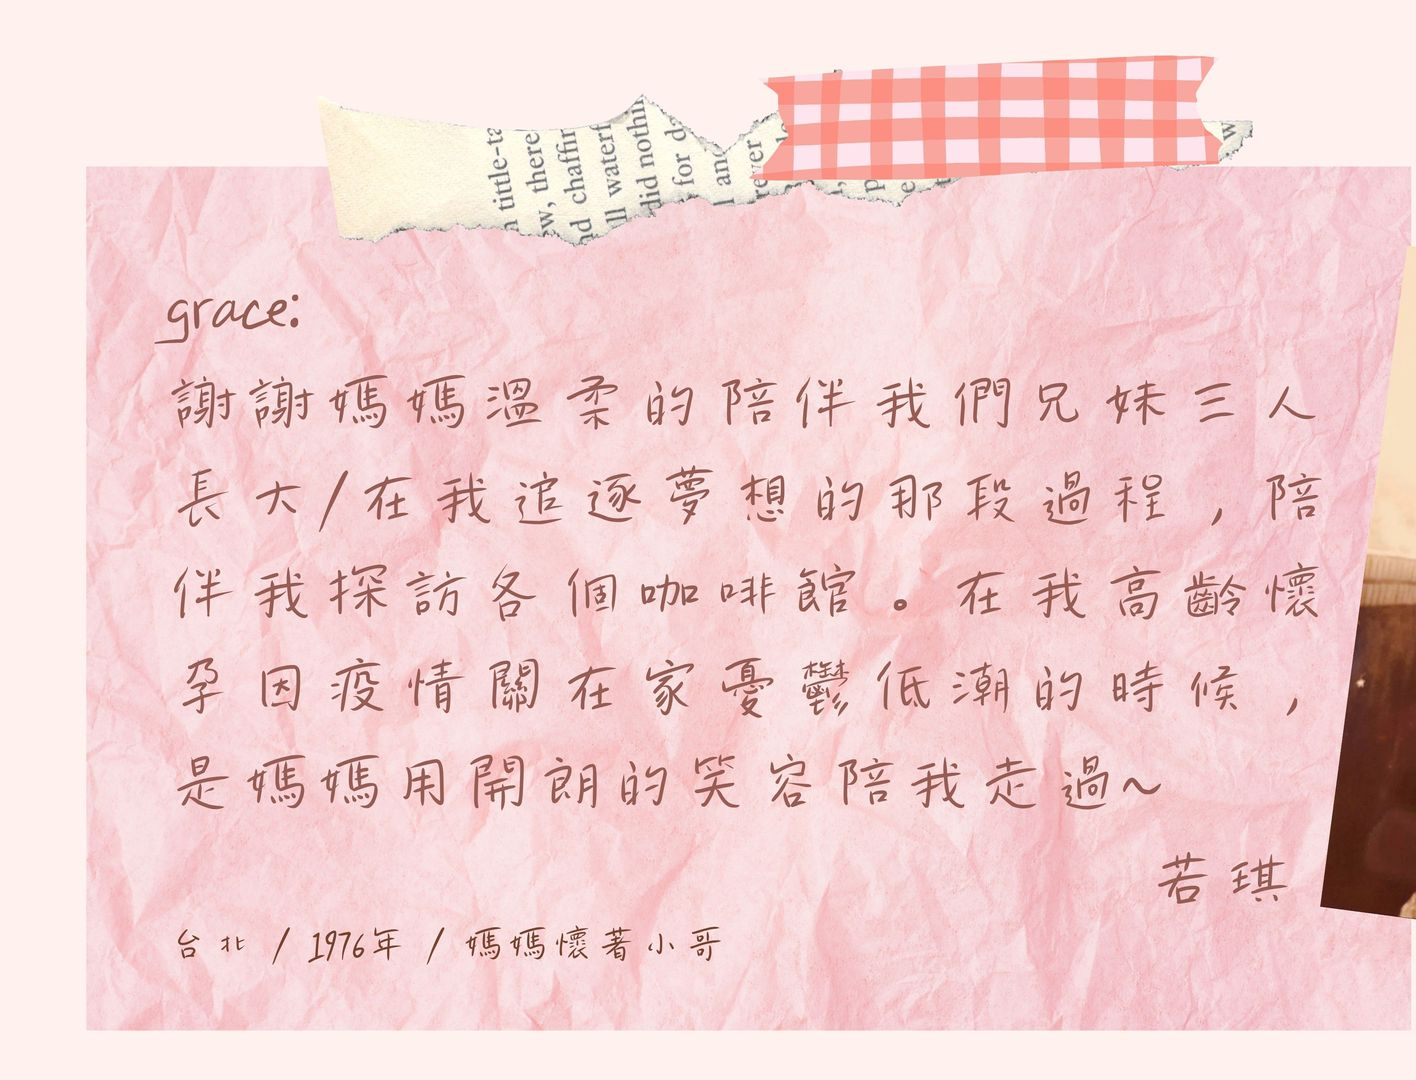 n tittle-ta
ew, there
nd chaffin
ll waterf
did nothi
for da
l and
rever
w
grace:
謝謝媽媽溫柔的陪伴我們兄妹三人
長大/在我追逐夢想的那段過程，陪
伴我探訪各個咖啡館。在我高齡懷
孕因疫情關在家憂鬱低潮的時候，
是媽媽用開朗的笑容陪我走過~
若琪
台北 / 1976年 / 媽媽懷著小哥